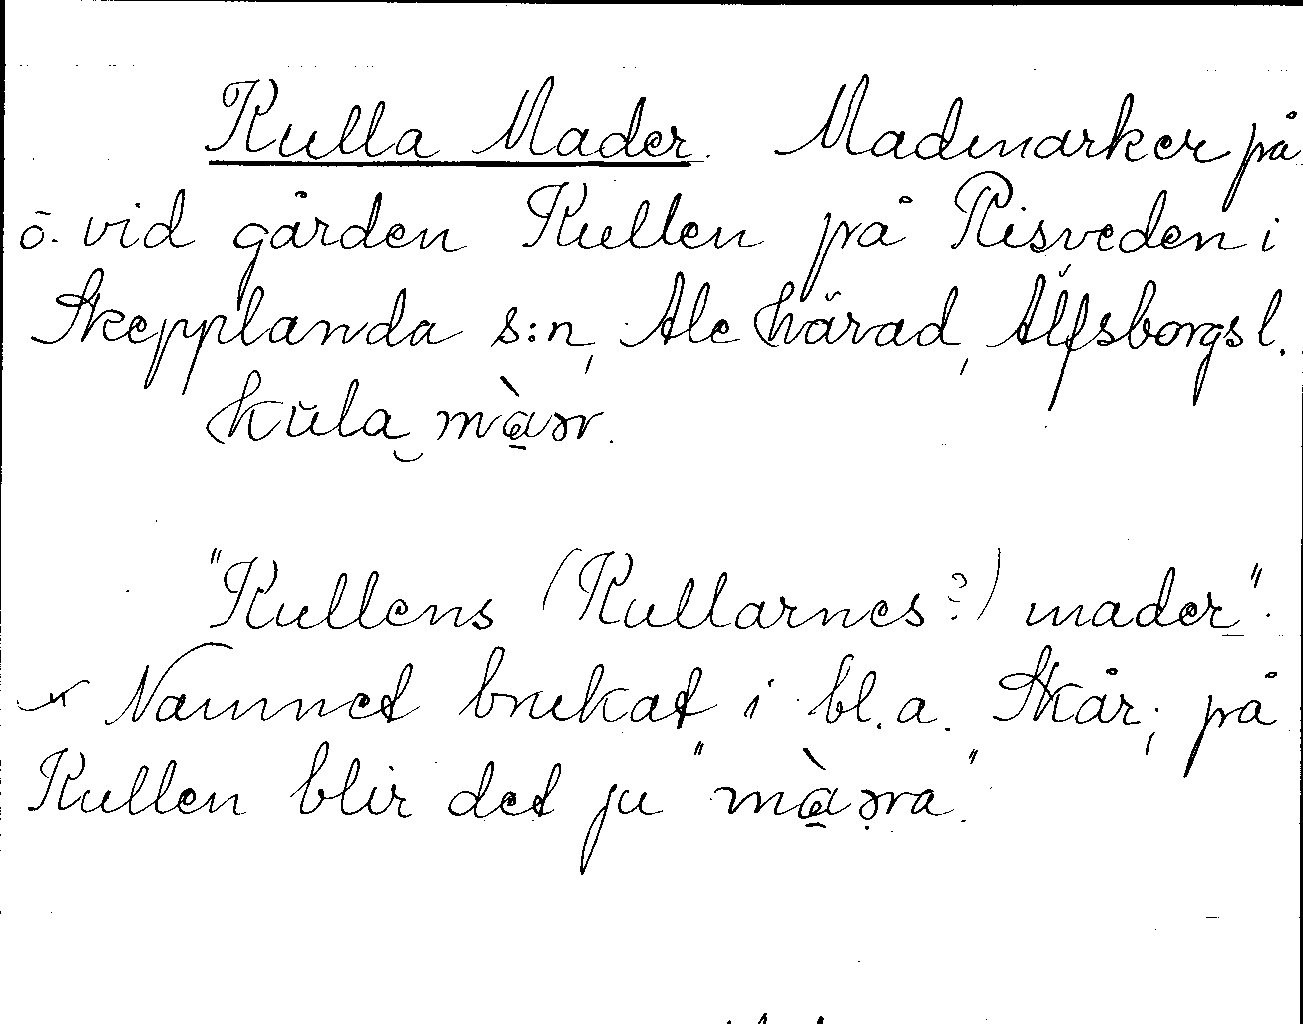 Kulla Mader. Madmarker på
ö. vid gården Kullen på Risveden i
Skepplanda s:n, Ale härad, Älfsborgs l.
kŭla màər.
"Kullens (Kullarnes?) mader".
Namnet brukat i bl.a. Skår; på
Kullen blir det ju "màəra".